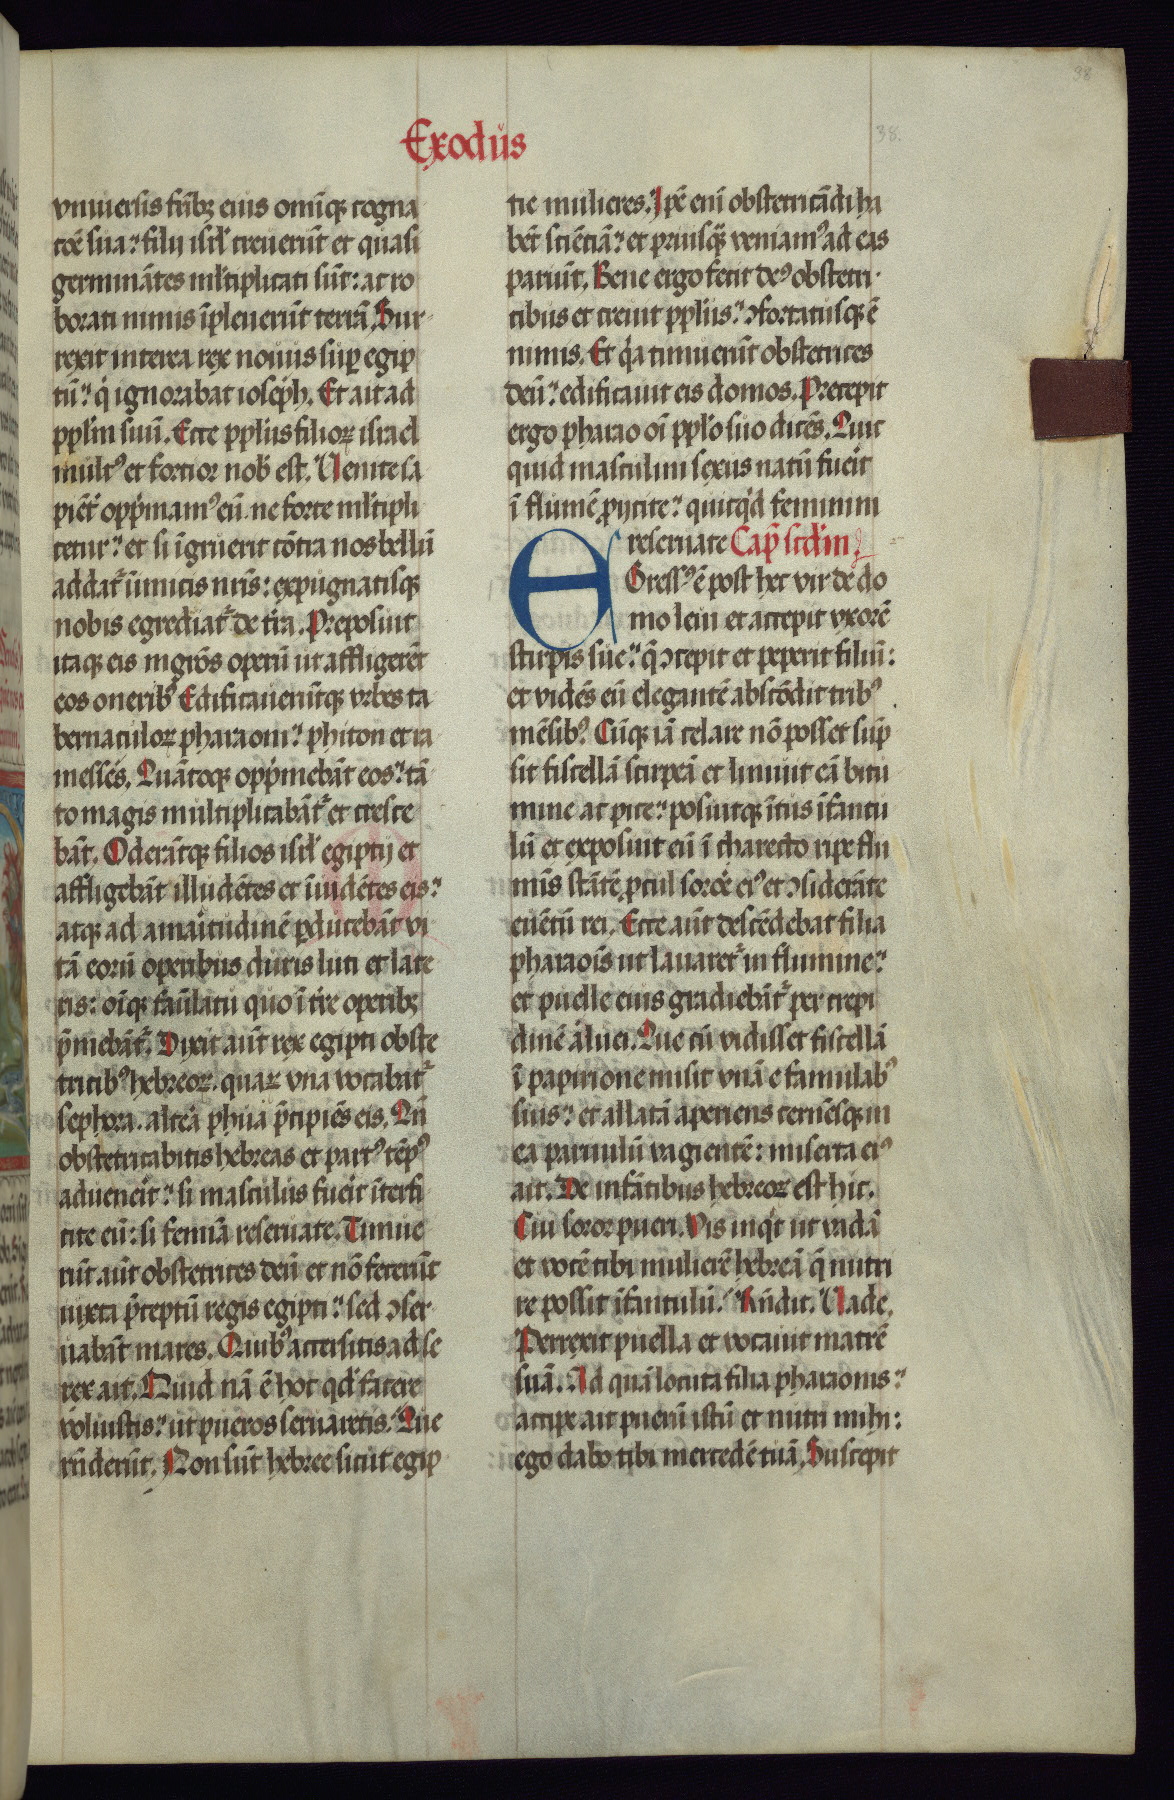 Exodus
38.
vniuersis fr̄ibꝫ eius om̄iqꝫ cogna
tōe sua? filij isrl̄ creuerūt et quasi
germinātes ml̄tiplicati sūt: ac ro
borati nimis īpleuerūt terrā. Sur
rexit interea rex nouus sup egip
tū? qͥ ignorabat ioseph. Et ait ad
pplm̄ suū. Ecce ppl̄us filioꝝ israel
multꝰ et fortior nob̄ est. Uenite sa
piēt̄ opp̄mamꝰ eū. ne forte ml̄tipli
cetur? et si īgruerit cōtra nos bellū
addat̄ inimicis nr̄is: expugnatisqꝫ
nobis egrediat̄ de t̄ra. Preposuit
itaqꝫ eis mgr̄os operū ut affligerēt
eos oneribꝰ Edificaueruntqꝫ vrbes ta
bernaculoꝝ pharaoni? phiton et ra
messes. Quātoqꝫ opp̄mebāt eos? tā
to magis multiplicabāt̄ et cresce
bāt. Oderātqꝫ filios isrl̄ egiptij et
affligebāt illudētes et īuidētes eis?
atqꝫ ad amaritudinē ꝑducebāt vi
tā eorū operibus duris luti et late
ris: oīqꝫ famulatu quo ī t̄re operibꝫ
p̄mebāt̄. Dixit aūt rex egipti obste
tricibꝰ hebreoꝝ. quaꝝ vna vocabat̄
sephora. altera phua p̄cipiēs eis. Qn̄
obstetricabitis hebreas et partꝰ tēpꝰ
aduenerit? si masculus fuerit īterfi
cite eū: si femīa reseruate. Timue
rūt aūt obstetrices deū et nō fecerūt
iuxta p̄ceptū regis egipti? sed ꝯser
uabāt mares. Quibꝰ accersitis ad se
rex ait. Quid nā ē hoc qd̄ facere
voluistis? ut pueros seruaretis. Que
rn̄derūt. Non sūt hebree sicut egip
tie mulieres. Ip̄e eni obstetricādi ha
bēt sciētiā? et priusqꝫ veniamꝰ ad eas
pariūt. Bene ergo fecit deꝰ obstetri
cibus et creuit ppl̄us? ꝯfortatusqꝫ ē
nimis. Et qͥa timuerūt obstetrices
deū? edificauit eis domos. Precepit
ergo pharao oī ppl̄o suo dicēs. Quic
quid masculini sexus natū fuerit
ī flumē ꝓijcite? quicqͥd feminini
reseruate Cap̄ scdm̄
Egressꝰ ē post hec vir de do
mo leui et accepit vxorē
stirpis sue? q̄ ꝯcepit et peperit filiū:
et vidēs eū elegantē abscōdit tribꝰ
mēsibꝰ. Cūqꝫ iā celare nō posset sūp
sit fiscellā scirpeā et liniuit eā bitu
mine ac pice? posuitqꝫ ītus īfantu
lū et exposuit eū ī charecto ripe flu
mīs stāte ꝓcul sorore eiꝰ et ꝯsiderāte
euētū rei. Ecce aūt descēdebat filia
pharaoīs ut lauaret̄ in flumine?
et puelle eius gradiebāt̄ per crepi
dinē aluei. Que cū vidisset fiscellā
ī papirione misit vnā e famulabꝰ
suis? et allatā aperiens cernēsqꝫ in
ea paruulū vagientē: miserta eiꝰ
ait. De infātibus hebreoꝝ est hic.
Cui soror pueri. Vis inqͥt ut vadā
et vocē tibi mulierē hebreā q̄ nutri
re possit īfantulū. Rn̄dit. Uade.
Perrexit puella et vocauit matrē
suā. Ad quā locuta filia pharaonis?
accipe ait puerū istū et nutri mihi:
ego dabo tibi mercedē tuā. Suscepit